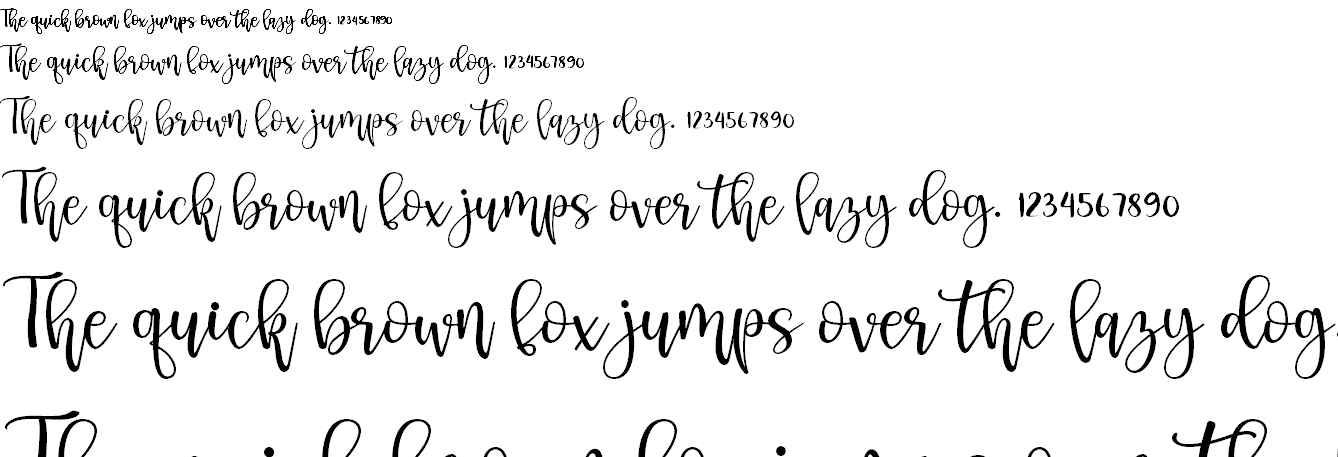 The quick brown fox jumps over the lazy dog. 1234567890
The quick brown fox jumps over the lazy dog. 1234567890
The quick brown fox jumps over the lazy dog. 1234567890
The quick brown fox jumps over the lazy dog. 1234567890
The quick brown fox jumps over the lazy dog.
The quick brown fox jumps over the